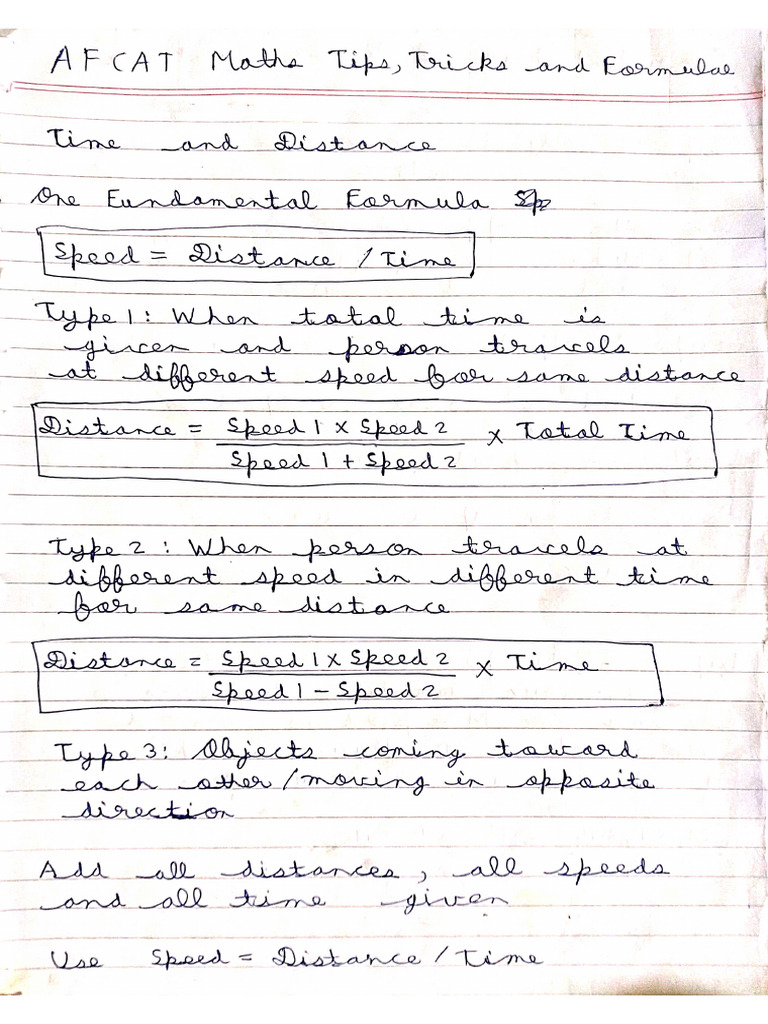 AFCAT Maths Tips, Tricks and Formulae
Time and Distance
One Fundamental Formula Sp
Speed = Distance / Time
Type 1: When total time is
given and person travels
at different speed for same distance
Distance = Speed 1 x Speed 2 x Total Time
Speed 1 + Speed 2
Type 2 : When person travels at
different speed in different time
for same distance
Distance = Speed 1 x Speed 2 x Time
Speed 1 - Speed 2
Type 3: Objects coming toward
each other / moving in opposite
direction
Add all distances, all speeds
and all time given
Use Speed = Distance / Time